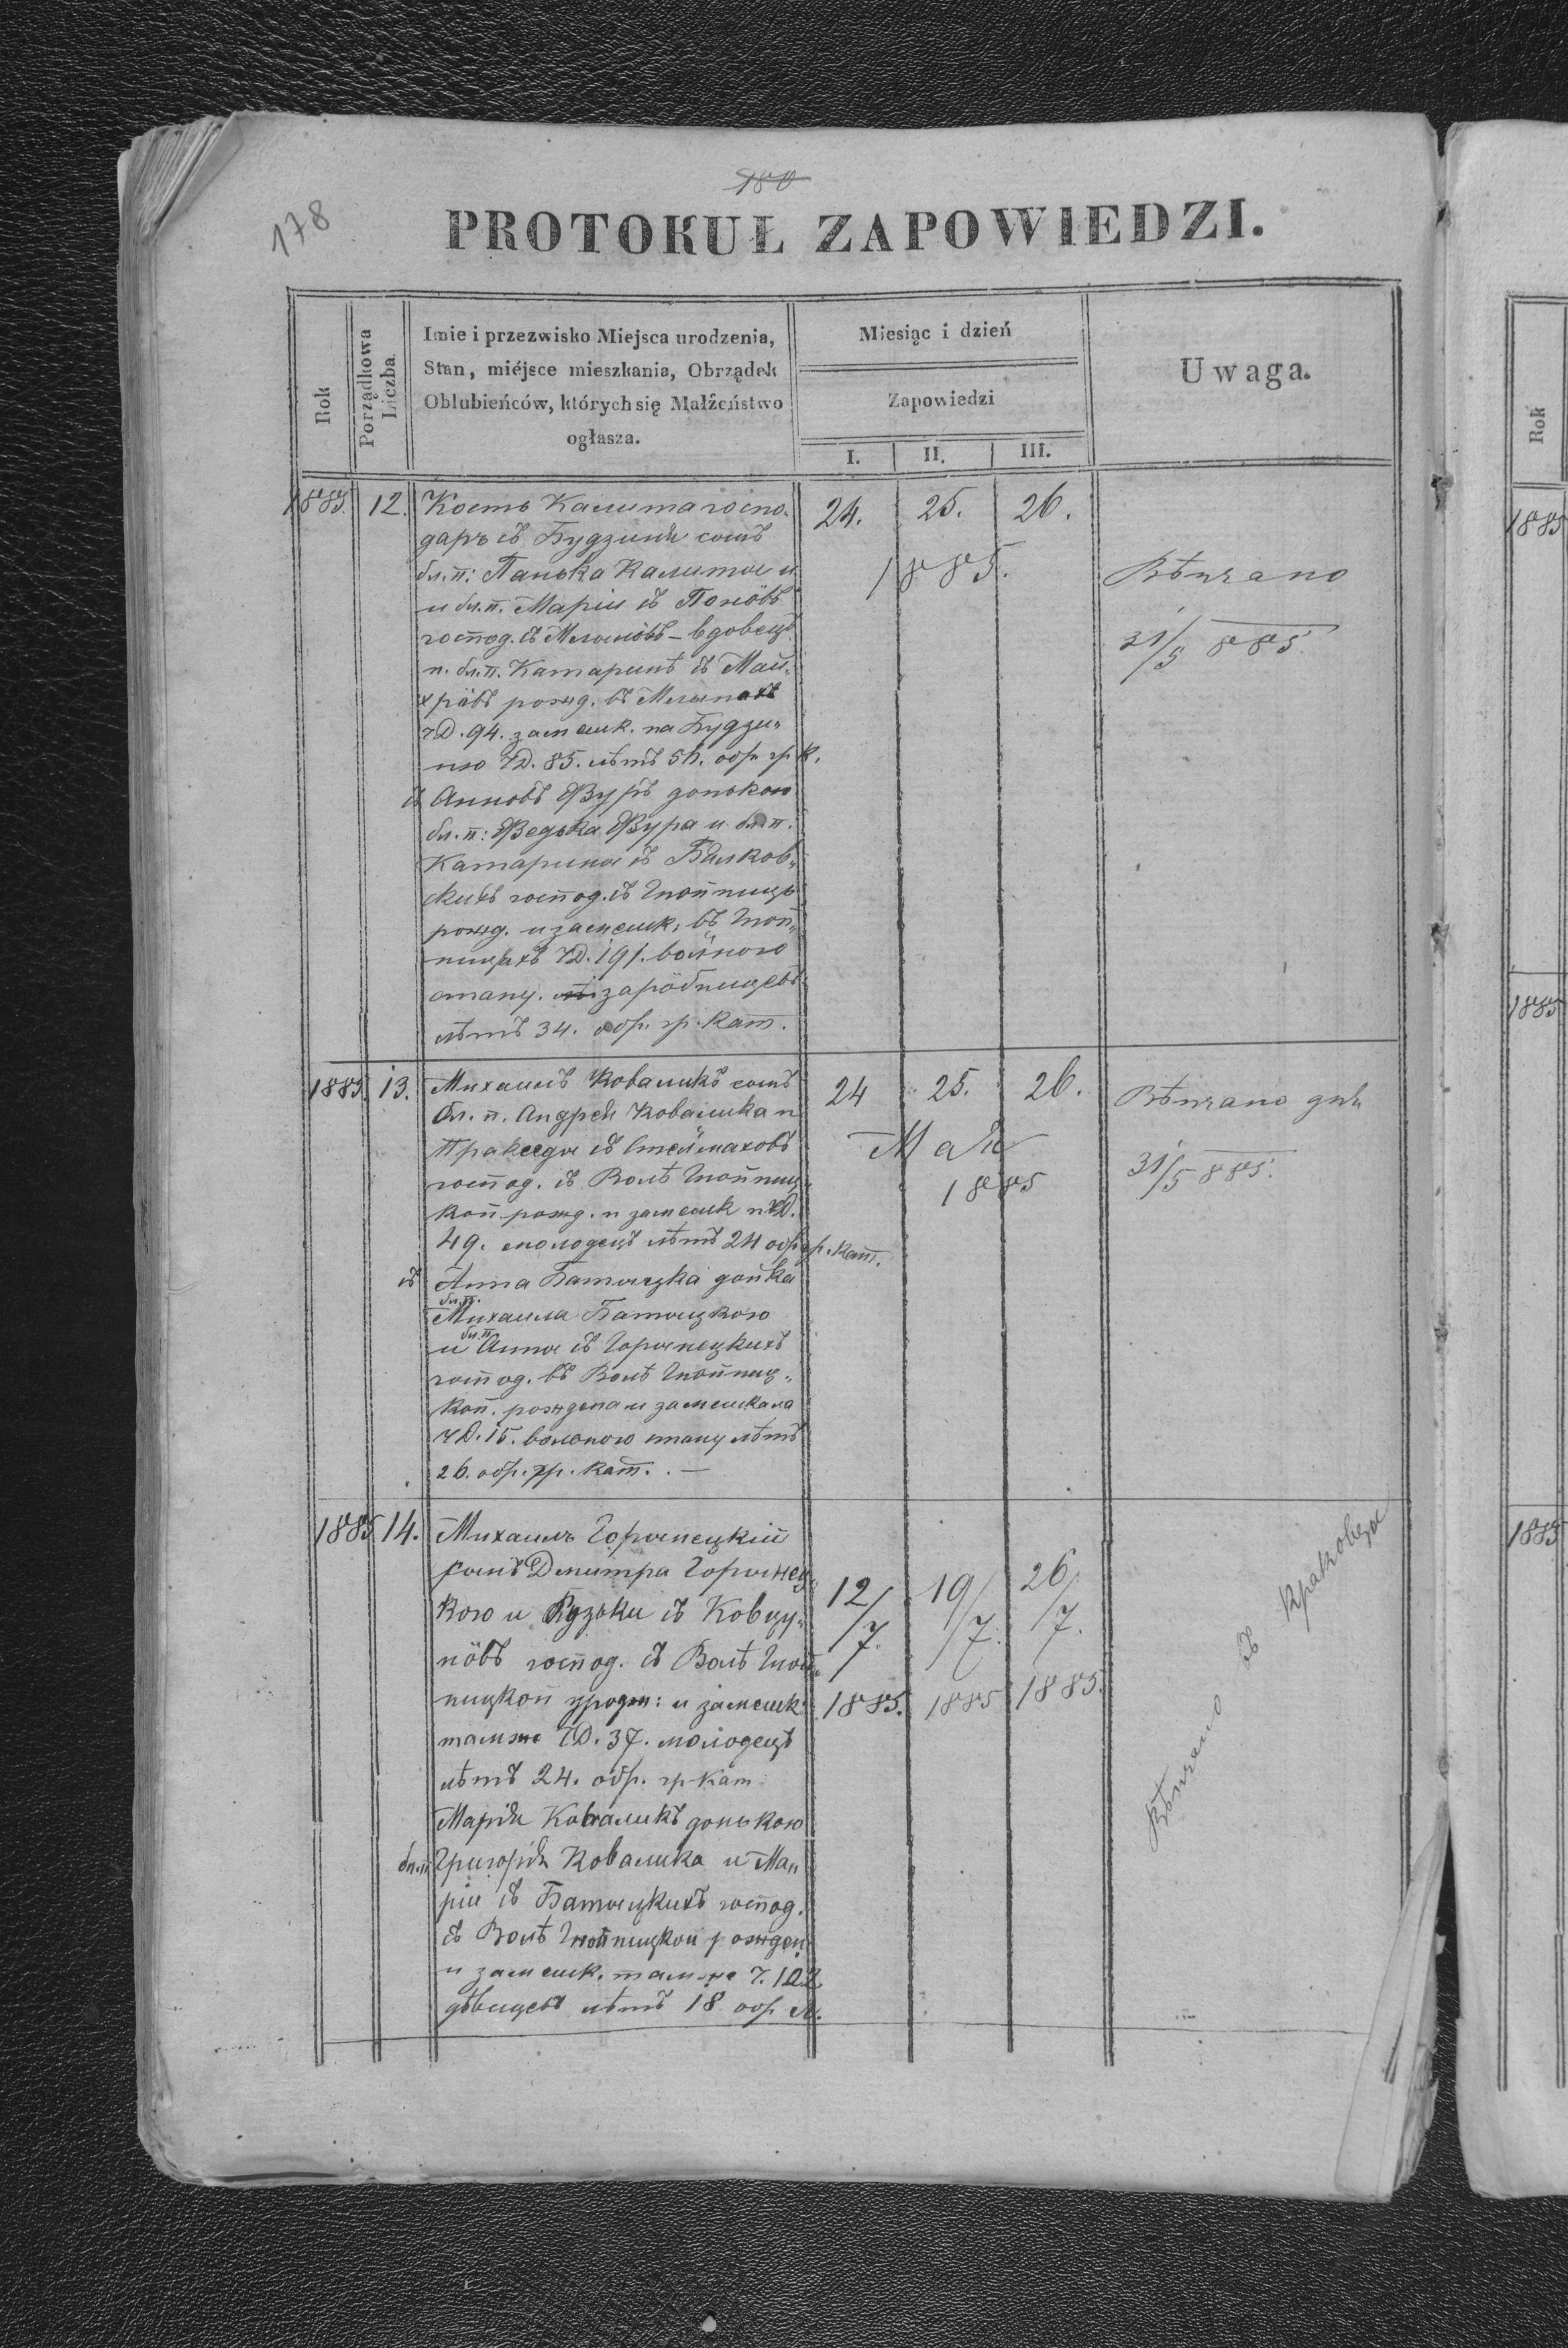 180
178
PROTOKUŁ ZAPOWIEDZI.
Rok
Porządkowa Liczba
Imie i przezwisko Miejsca urodzenia,
Stan, miéjsce mieszkania, Obrządek
Oblubieńców, których się Małżeństwo
ogłasza.
Miesiąc i dzień
Zapowiedzi
I. II. III.
Uwaga.
1885. 12. Кость Калита госпо-
даръ съ Будзиня сынъ
бл.п: Панька Калиты и
и бл.п. Маріи съ Поповъ
господ. съ Млыновъ – вдовецъ
п. бл.п. Катаринѣ съ Май-
хрäвъ рожд. въ Млынахъ
чD. 94. замешк. на Будзи-
ню чD. 85. лѣтъ обр. гр. к.
съ Анновъ Ѳуръ донькою
бл.п: Ѳедька Ѳура и бл.п.
Катарины съ Бялков-
скихъ господ. съ Хотинецъ
рожд. и замешк. въ Хоти-
ницахъ чD. 191. вольного
стану. зарöбницевъ
лѣтъ 34. обр. гр. кат.
24. 25. 26.
1885.
Вѣнчано
31/5 885.
1885. 13. Михаилъ Коваликъ сынъ
бл. п. Андрея Ковалика и
Пракседы съ Стельмаховъ
господ. съ Волѣ
кой рожд. и замешк п. чD.
49. молодецъ лѣтъ 24 обр. гр. кат.
съ Анна Батыцка донька
бл.п.
Михаила Батыцкого
бл.п.
и Анны съ Горынецкихъ
господ. въ Волѣ
кой. рождена и замешкала
чD. 15. вольного стану лѣтъ
26. обр. гр. кат. . –
24 25. 26.
Мая
1885
Вѣнчано дня
31/5 885.
1885 14. Михаилъ Горынецкій
сынъ Дмитра Горынец-
кого и Рузьки съ Ковцу-
нöвъ господ. съ Волѣ
ницкой урожд: и замешк
тамже чD. 37. молодецъ
лѣтъ 24. обр. гр кат
Марія Коваликъ донькою
бл.п Григорія Ковалика и Ма-
ріи съ Батыцкихъ господ.
съ Волѣ рожден
и замешк. тамже ч. 122
дѣвицевъ лѣтъ 18 обр. л.
12/7. 19/7. 26/7.
1885. 1885 1885.
Вѣнчано въ Краковци
Rok
1885
1885
1885